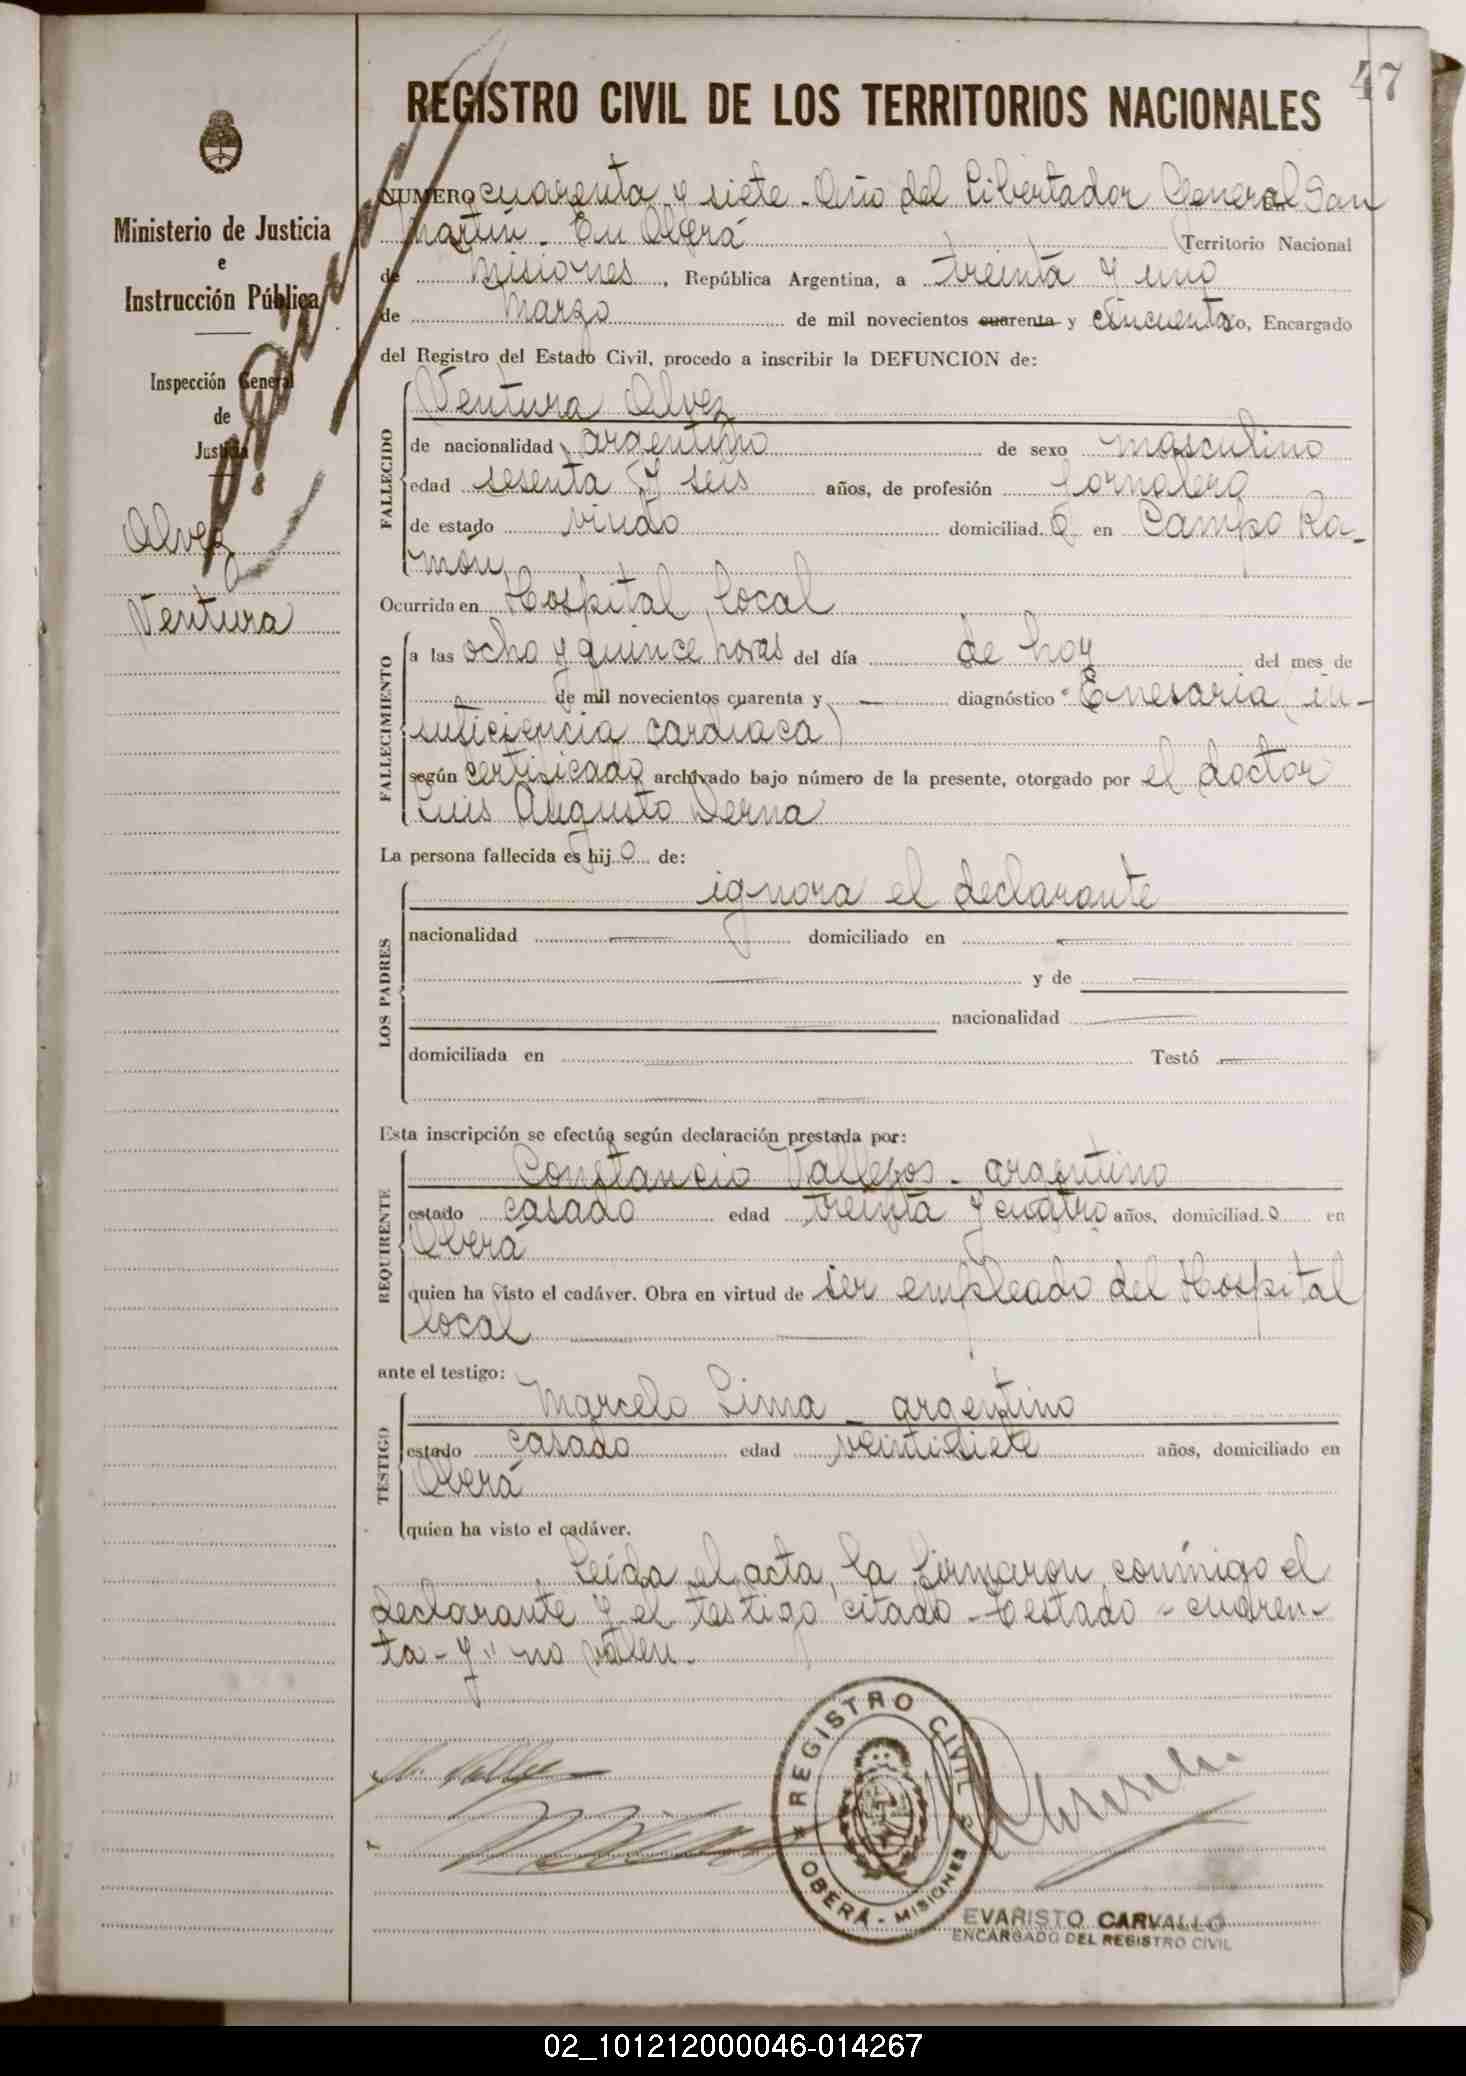 47
REGISTRO CIVIL DE LOS TERRITORIOS NACIONALES
Ministerio de Justicia
e
Instrucción Pública
Inspección General
de
Justicia
Alvez
Ventura
NUMERO cuarenta y siete - Año del Libertador General San
Martín - En Oberá Territorio Nacional
de Misiones, República Argentina, a treinta y uno
de Marzo de mil novecientos cuarenta y cincuenta yo, Encargado
del Registro del Estado Civil, procedo a inscribir la DEFUNCION de:
Ventura Alvez
FALLECIDO
de nacionalidad argentino de sexo masculino
edad sesenta y seis años, de profesión Jornalero
de estado viudo domiciliad o en Campo Ra-
món
Ocurrida en Hospital local
FALLECIMIENTO
a las ocho y quince horas del día de hoy del mes de
de mil novecientos cuarenta y — diagnóstico (in-
suficiencia cardíaca)
según certificado archivado bajo número de la presente, otorgado por el doctor
Luis Augusto Derna
La persona fallecida es hij o de:
LOS PADRES
ignora el declarante
nacionalidad — domiciliado en —
— y de —
nacionalidad —
domiciliada en — Testó —
Esta inscripción se efectúa según declaración prestada por:
REQUIRENTE
Constancio Vallejos - argentino
estado casado edad treinta y cuatro años, domiciliad o en
Oberá
quien ha visto el cadáver. Obra en virtud de ser empleado del Hospital
local
ante el testigo:
TESTIGO
Marcelo Lima - argentino
estado casado edad veintisiete años, domiciliado en
Oberá
quien ha visto el cadáver.
Leída el acta, la firmaron conmigo el
declarante y el testigo citado - Testado - cuaren-
ta - y" no valen.
REGISTRO CIVIL
OBERÁ - MISIONES
EVARISTO CARVALLO
ENCARGADO DEL REGISTRO CIVIL
02_101212000046-014267